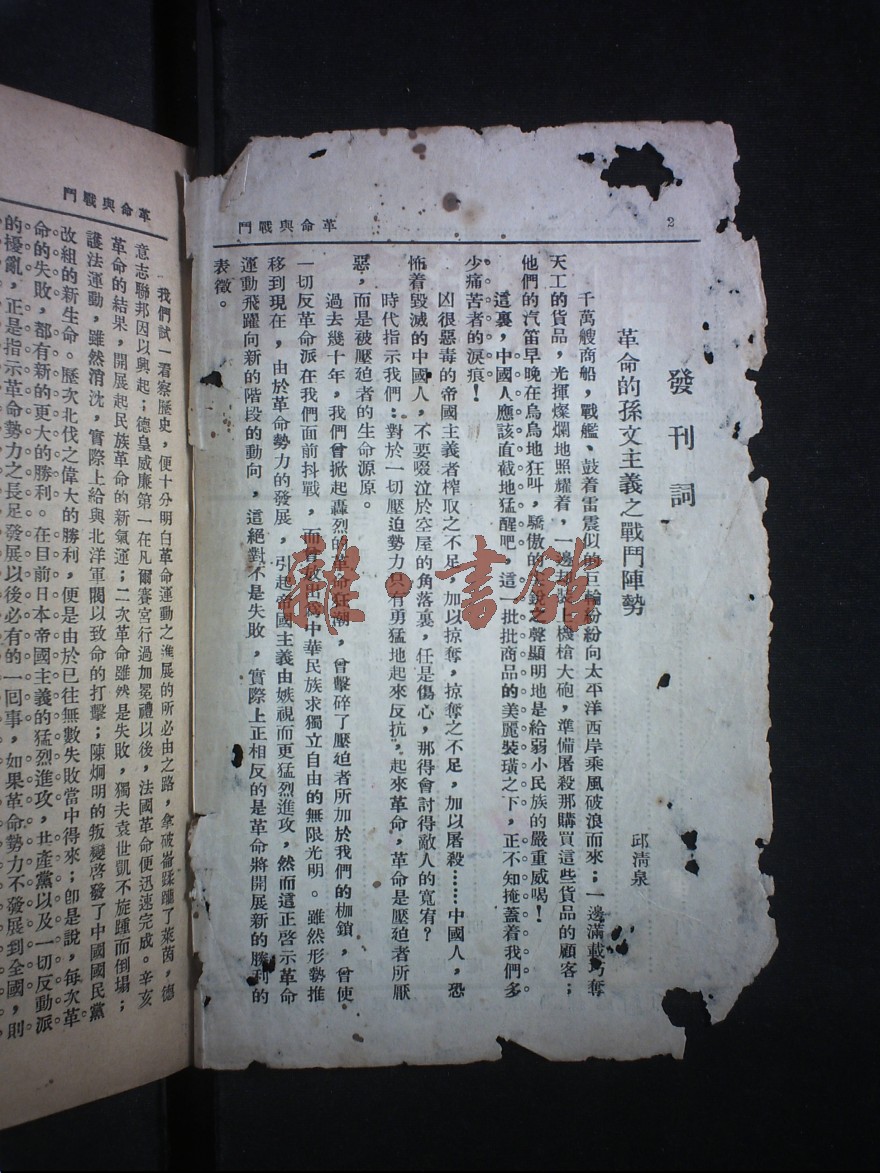 2
革命與戰鬥
發刊詞
革命的孫文主義之戰鬥陣勢
邱清泉
千萬艘商船，戰艦、鼓着雷震似的巨輪紛紛向太平洋西岸乘風破浪而來；一邊滿載巧奪
天工的貨品，光揮燦爛地照耀着，一邊却裝上機槍大砲，準備屠殺那購買這些貨品的顧客；
他們的汽笛早晚在烏烏地狂叫，驕傲的尖銳之聲顯明地是給弱小民族的嚴重威喝！
這裏，中國人應該直截地猛醒吧，這一批批商品的美麗裝璜之下，正不知掩蓋着我們多
少痛苦者的淚痕！
凶很惡毒的帝國主義者榨取之不足，加以掠奪，掠奪之不足，加以屠殺……中國人，恐
怖着毀滅的中國人，不要啜泣於空屋的角落裏，任是傷心，那得會討得敵人的寬宥？
時代指示我們：對於一切壓迫勢力只有勇猛地起來反抗，起來革命，革命是壓迫者所厭
惡，而是被壓迫者的生命源原。
過去幾十年，我們曾掀起轟烈的革命狂潮，曾擊碎了壓迫者所加於我們的枷鎖，曾使
一切反革命派在我們面前抖戰，而曾放出爲中華民族求獨立自由的無限光明。雖然形勢推
移到現在，由於革命勢力的發展，引起帝國主義由嫉視而更猛烈進攻，然而這正啓示革命
運動飛躍向新的階段的動向，這絕對不是失敗，實際上正相反的是革命將開展新的勝利的
表徵。
革命與戰鬥
我們試一看察歷史，便十分明白革命運動之進展的所必由之路，拿破崙蹂躪了萊茵，德
意志聯邦因以興起；德皇威廉第一在凡爾賽宮行過加冕禮以後，法國革命便迅速完成。辛亥
革命的結果，開展起民族革命的新氣運；二次革命雖然是失敗，獨夫袁世凱不旋踵而倒塌；
護法運動，雖然消沈，實際上給與北洋軍閥以致命的打擊；陳烱明的叛變啓發了中國國民黨
改組的新生命。歷次北伐之偉大的勝利，便是由於已往無數失敗當中得來；卽是說，每次革
命的失敗，都有新的更大的勝利。在目前日本帝國主義的猛烈進攻，共產黨以及一切反動派
的擾亂，正是指示革命勢力之長足發展以後必有的一回事，如果革命勢力不發展到全國，則
雜·書館